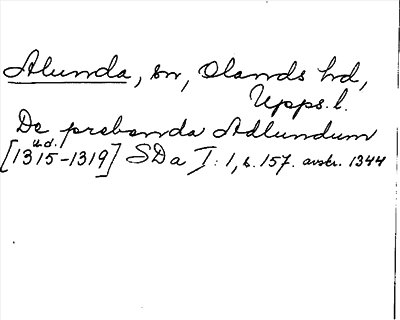 Alunda, sn, Olands hd,
Upps. l.
De prebenda Adlundum
u.d.
[1315-1319] SDa I: 1, s. 157. avskr. 1344